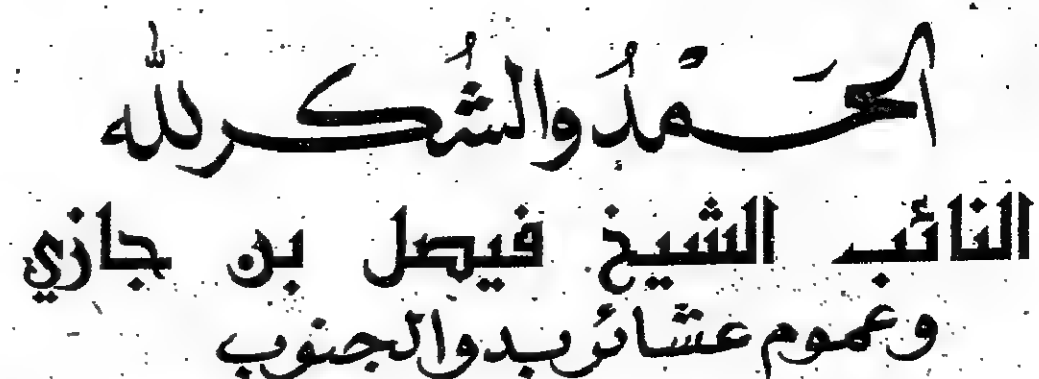 الحَمْدُ والشُكر لله
النائب الشيخ فيصل بن جازي
وعموم عشائر بدو الجنوب